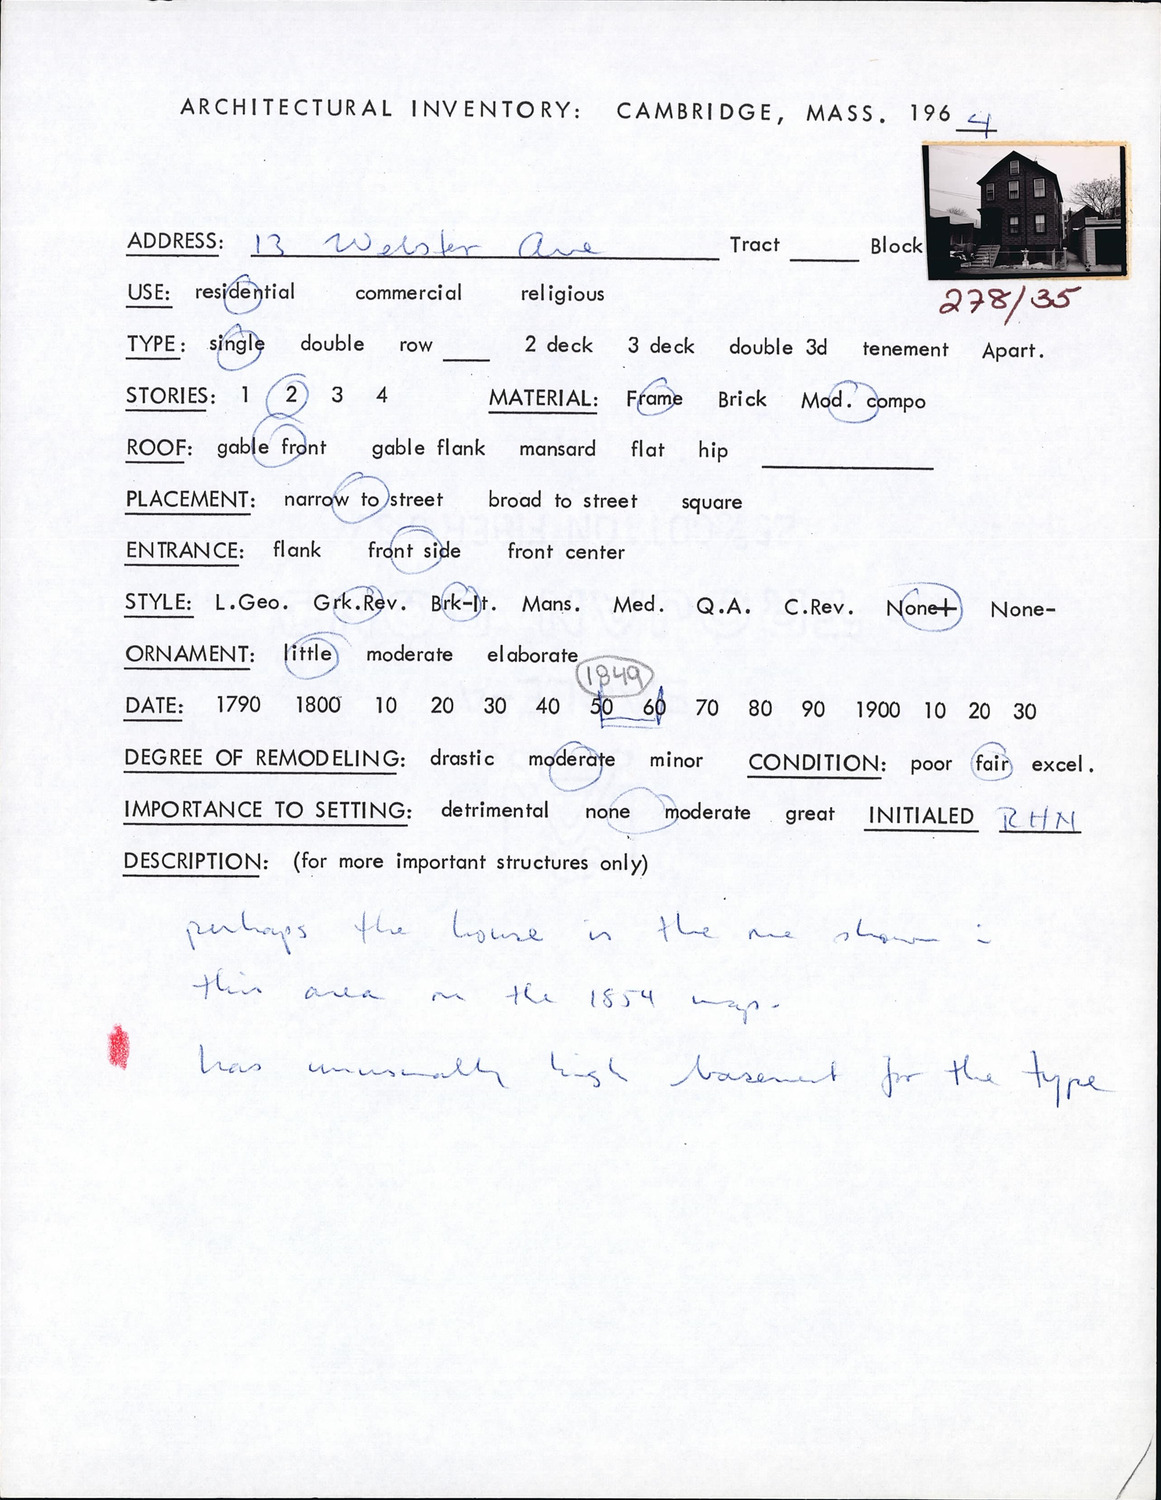 ARCHITECTURAL INVENTORY: CAMBRIDGE, MASS. 1964
ADDRESS: 13 Webster Ave Tract ____ Block
278/35
USE: residential commercial religious
TYPE: single double row ____ 2 deck 3 deck double 3d tenement Apart.
STORIES: 1 2 3 4 MATERIAL: Frame Brick Mod. compo
ROOF: gable front gable flank mansard flat hip ____
PLACEMENT: narrow to street broad to street square
ENTRANCE: flank front side front center
STYLE: L.Geo. Grk.Rev. Brk-It. Mans. Med. Q.A. C.Rev. None+ None-
ORNAMENT: little moderate elaborate
1849
DATE: 1790 1800 10 20 30 40 50 60 70 80 90 1900 10 20 30
DEGREE OF REMODELING: drastic moderate minor CONDITION: poor fair excel.
IMPORTANCE TO SETTING: detrimental none moderate great INITIALED RHN
DESCRIPTION: (for more important structures only)
perhaps the house is the one shown in
this area on the 1854 map.
has unusually high basement for the type